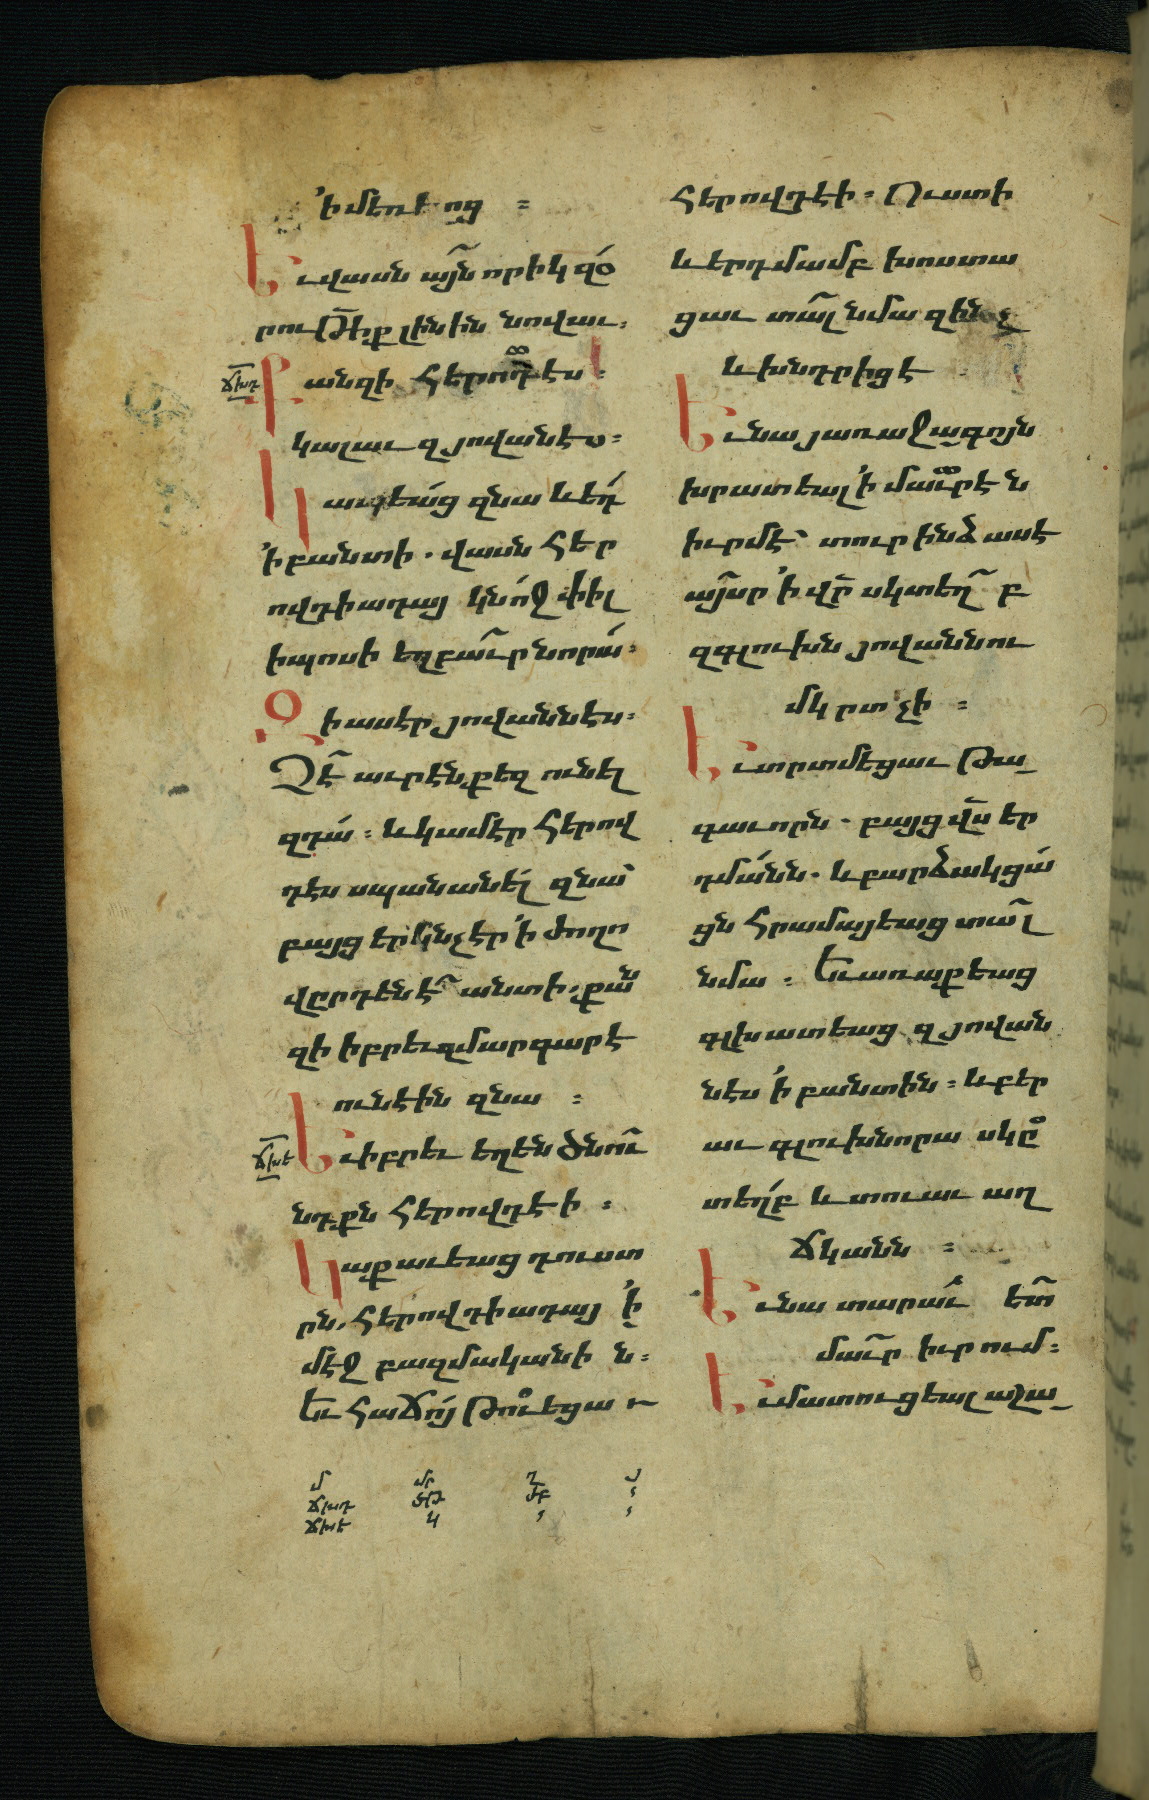 ՛ի մեռելոց ։
Եւ վասն այ՟ն որիկ զօ
րութի՟ք լինին նովաւ ։
ճխդ Քանզի Հերովդէս ։
կալաւ զյովանէս ։
Կապեաց զնա և եդ
՛ի բանտի . վասն Հեր
ովդիադայ կնոջ փիլ
իպոսի եղբաւր նորա ։
Զի ասէր յովաննէս ։
Չէ՟ աւրէն քեզ ունել
զդա ։ և կամէր Հերով
դէս սպանանել զնա
բայց երկնչէր ՛ի ժողո
վըրդենէ՟ անտի . քան
զի իբրեւ զմարգարէ
ունէին զնա ։
ճխե Եւ իբրեւ եղեն ծնու
նդքն Հերովդէի ։
Կաքաւեաց դուստ
րն . Հերովդիադայ ՛ի
մէջ բազմականի ն ։
Եւ Հաճոյ թուեցաւ
Հերովդէի ։ Ուստի
և երդմամբ խոստա
ցաւ տալ նմա զինչ
և խնդրիցէ
Եւ նա յառաջագոյն
խրատեալ ՛ի մաւրէ ն
իւրմէ՝ տուր ինձ ասէ
այ՟սր ՛ի վր՟ սկտեղ՟ բ
զգլուխն յովաննու
մկրտչի ։
Եւ տրտմեցաւ թա
գաւորն . բայց վս՟ եր
դմանն . և բարձակցա
ցն Հրամայեաց տալ
նմա ։ Եւ առաքեաց
գլխատեաց զյովան
նէս ՛ի բանտին ։ և բեր
աւ գլուխ նորա սկը
տեղբ և տուաւ աղ
ճկանն ։
Եւ նա տարաւ ետ՟
մաւր իւրում ։
Եւ մատուցեալ աշա
մ մր ղ յ
ճխդ ծթ ժբ
ճխե կ